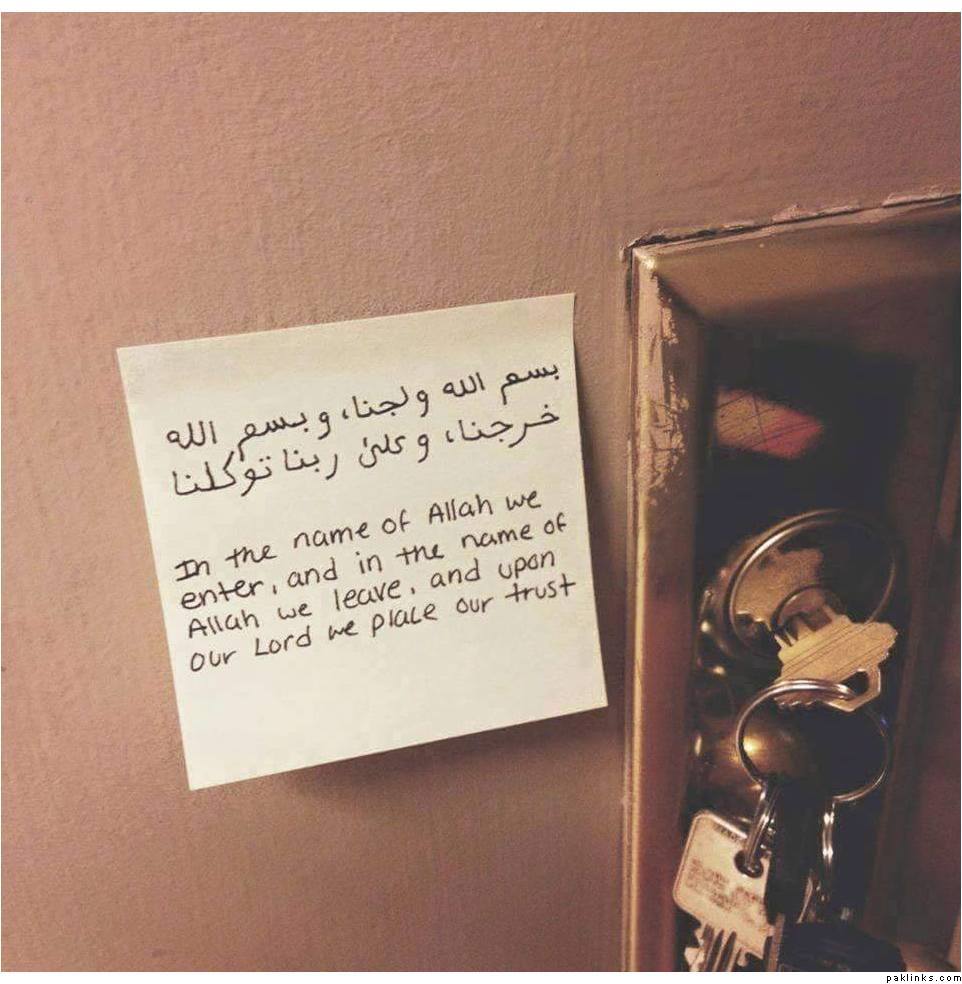 بسم الله ولجنا، وبسم الله
خرجنا، وعلى ربنا توكلنا
In the name of Allah we
enter, and in the name of
Allah we leave, and upon
our Lord we place our trust
paklinks.com